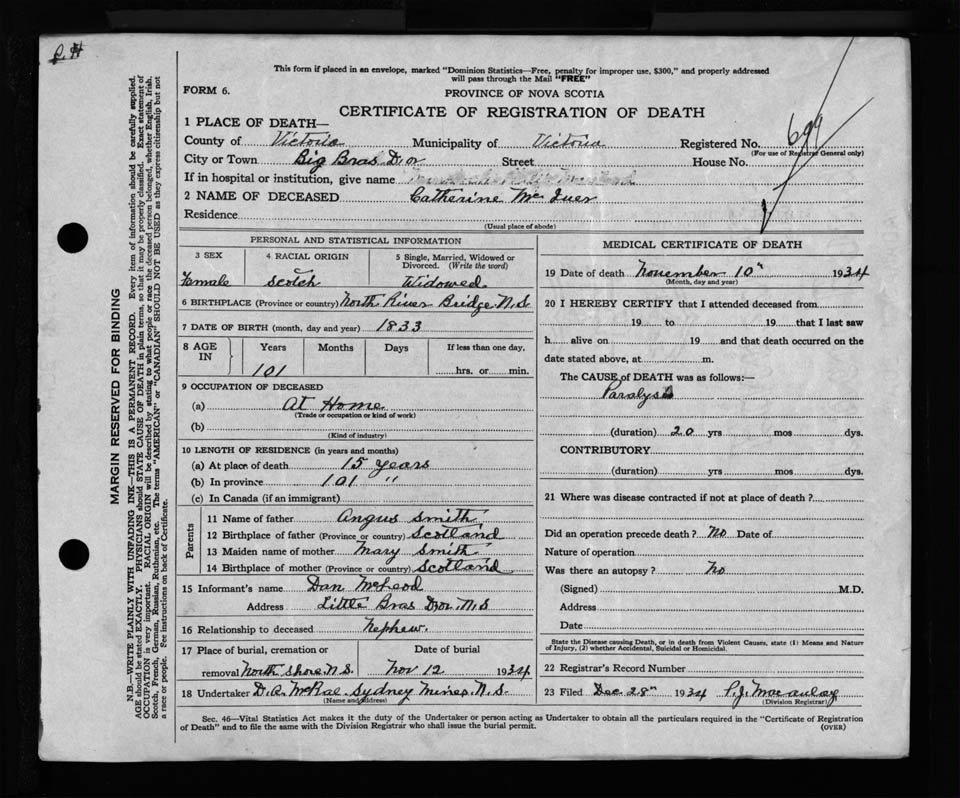 P. H
This form if placed in an envelope, marked "Dominion Statistics—Free, penalty for improper use, $300," and properly addressed
will pass through the Mail "FREE"
FORM 6.
PROVINCE OF NOVA SCOTIA
CERTIFICATE OF REGISTRATION OF DEATH
699
1 PLACE OF DEATH—
County of Victoria Municipality of Victoria Registered No.
(For use of Registrar General only)
City or Town Big Bras D'or Street House No.
If in hospital or institution, give name
2 NAME OF DECEASED Catherine McIver
Residence
(Usual place of abode)
PERSONAL AND STATISTICAL INFORMATION
3 SEX 4 RACIAL ORIGIN 5 Single, Married, Widowed or
Divorced. (Write the word)
Female Scotch Widowed
6 BIRTHPLACE (Province or country) North River Bridge N.S
7 DATE OF BIRTH (month, day and year) 1833
8 AGE IN Years Months Days If less than one day,
101 hrs. or min.
9 OCCUPATION OF DECEASED
(a) At Home
(Trade or occupation or kind of work)
(b)
(Kind of industry)
10 LENGTH OF RESIDENCE (in years and months)
(a) At place of death 15 years
(b) In province 101 "
(c) In Canada (if an immigrant)
Parents
11 Name of father Angus Smith
12 Birthplace of father (Province or country) Scotland
13 Maiden name of mother Mary Smith
14 Birthplace of mother (Province or country) Scotland
15 Informant's name Dan McLeod
Address Little Bras Dor. N.S
16 Relationship to deceased Nephew.
17 Place of burial, cremation or Date of burial
removal North Shore N.S. Nov 12 1934
18 Undertaker D. A. McRae. Sydney Mines, N.S.
(Name and address)
MEDICAL CERTIFICATE OF DEATH
19 Date of death November 10" 1934
(Month, day and year)
20 I HEREBY CERTIFY that I attended deceased from
19 to 19 that I last saw
h alive on 19 and that death occurred on the
date stated above, at m.
The CAUSE of DEATH was as follows:—
Paralysis
(duration) 20 yrs mos dys.
CONTRIBUTORY
(duration) yrs mos dys.
21 Where was disease contracted if not at place of death?
Did an operation precede death? No Date of
Nature of operation
Was there an autopsy? No
(Signed) M.D.
Address
Date
State the Disease causing Death, or in death from Violent Causes, state (1) Means and Nature
of Injury, (2) whether Accidental, Suicidal or Homicidal.
22 Registrar's Record Number
23 Filed Dec 28" 1934 P.J. Macaulay
(Division Registrar)
Sec. 46—Vital Statistics Act makes it the duty of the Undertaker or person acting as Undertaker to obtain all the particulars required in the "Certificate of Registration
of Death" and to file the same with the Division Registrar who shall issue the burial permit.
(OVER)
MARGIN RESERVED FOR BINDING
N.B.—WRITE PLAINLY WITH UNFADING INK—THIS IS A PERMANENT RECORD. Every item of information should be carefully supplied.
AGE should be stated EXACTLY. PHYSICIANS should STATE CAUSE OF DEATH in plain terms, so that it may be properly classified. Exact statement of
OCCUPATION is very important. RACIAL ORIGIN will be described by stating to what people or race the deceased person belonged, whether English, Irish,
Scotch, French, German, Russian, Ruthenian, etc. The terms "AMERICAN" or "CANADIAN" SHOULD NOT BE USED as they express citizenship but not
a race or people. See instructions on back of Certificate.